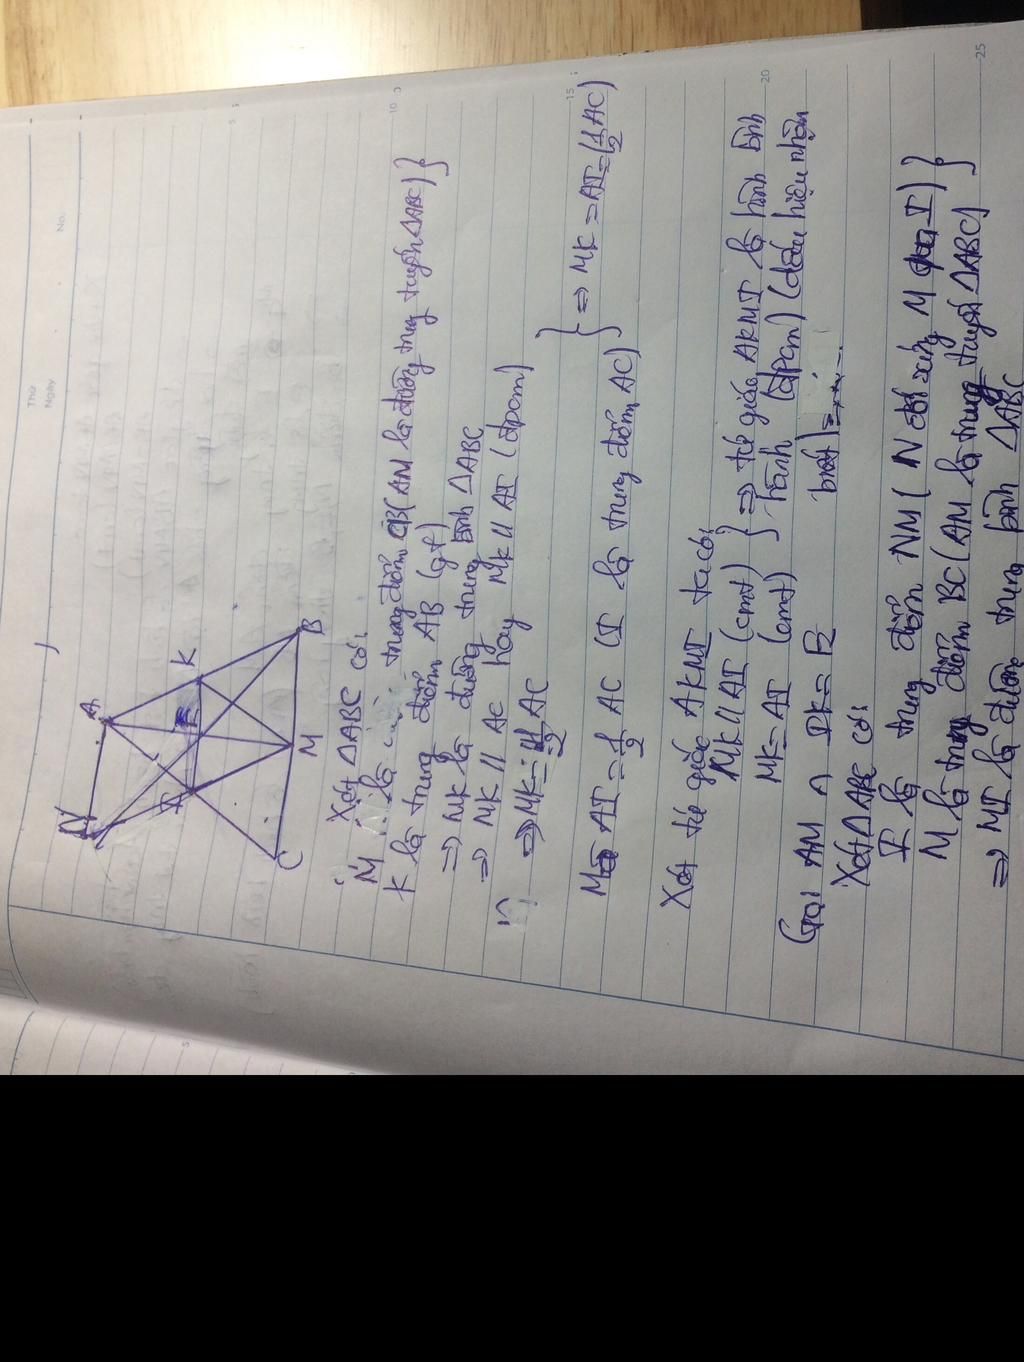 Thứ
Ngày
No.
5
10
15
20
25
5
N
A
I
E
K
C
M
B
Xét ΔABC có:
M là trung điểm CB (AM là đường trung tuyến ΔABC) }
K là trung điểm AB (gt)
=> MK là đường trung bình ΔABC
=> MK // AC hay MK // AI (đpcm)
=> MK = 1/2 AC
Mà AI = 1/2 AC (I là trung điểm AC) } => MK = AI = (1/2 AC)
Xét tứ giác AKMI ta có:
MK // AI (cmt) } => tứ giác AKMI là hình bình
MK = AI (cmt) hành (đpcm) (dấu hiệu nhận
biết)
Gọi AM ∩ IK = E
Xét ΔABC có:
I là trung điểm NM (N đối xứng M qua I) }
M là trung điểm BC (AM là trung tuyến ΔABC)
=> MI là đường trung bình ΔABC